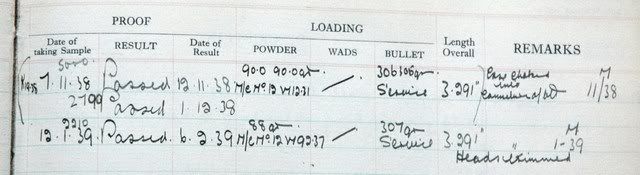 PROOF LOADING
Date of taking Sample RESULT Date of Result POWDER WADS BULLET Length Overall REMARKS
5000 90.0 90.0gr 306 306gr
7.11.38 Passed 12.11.38 Service 3.291" Case choked into cannelure 11/38
2799 Passed 1.12.38
2210 88gr 307gr
12.1.39 Passed 6.2.39 Service 3.291" " " 1-39
Heads skimmed